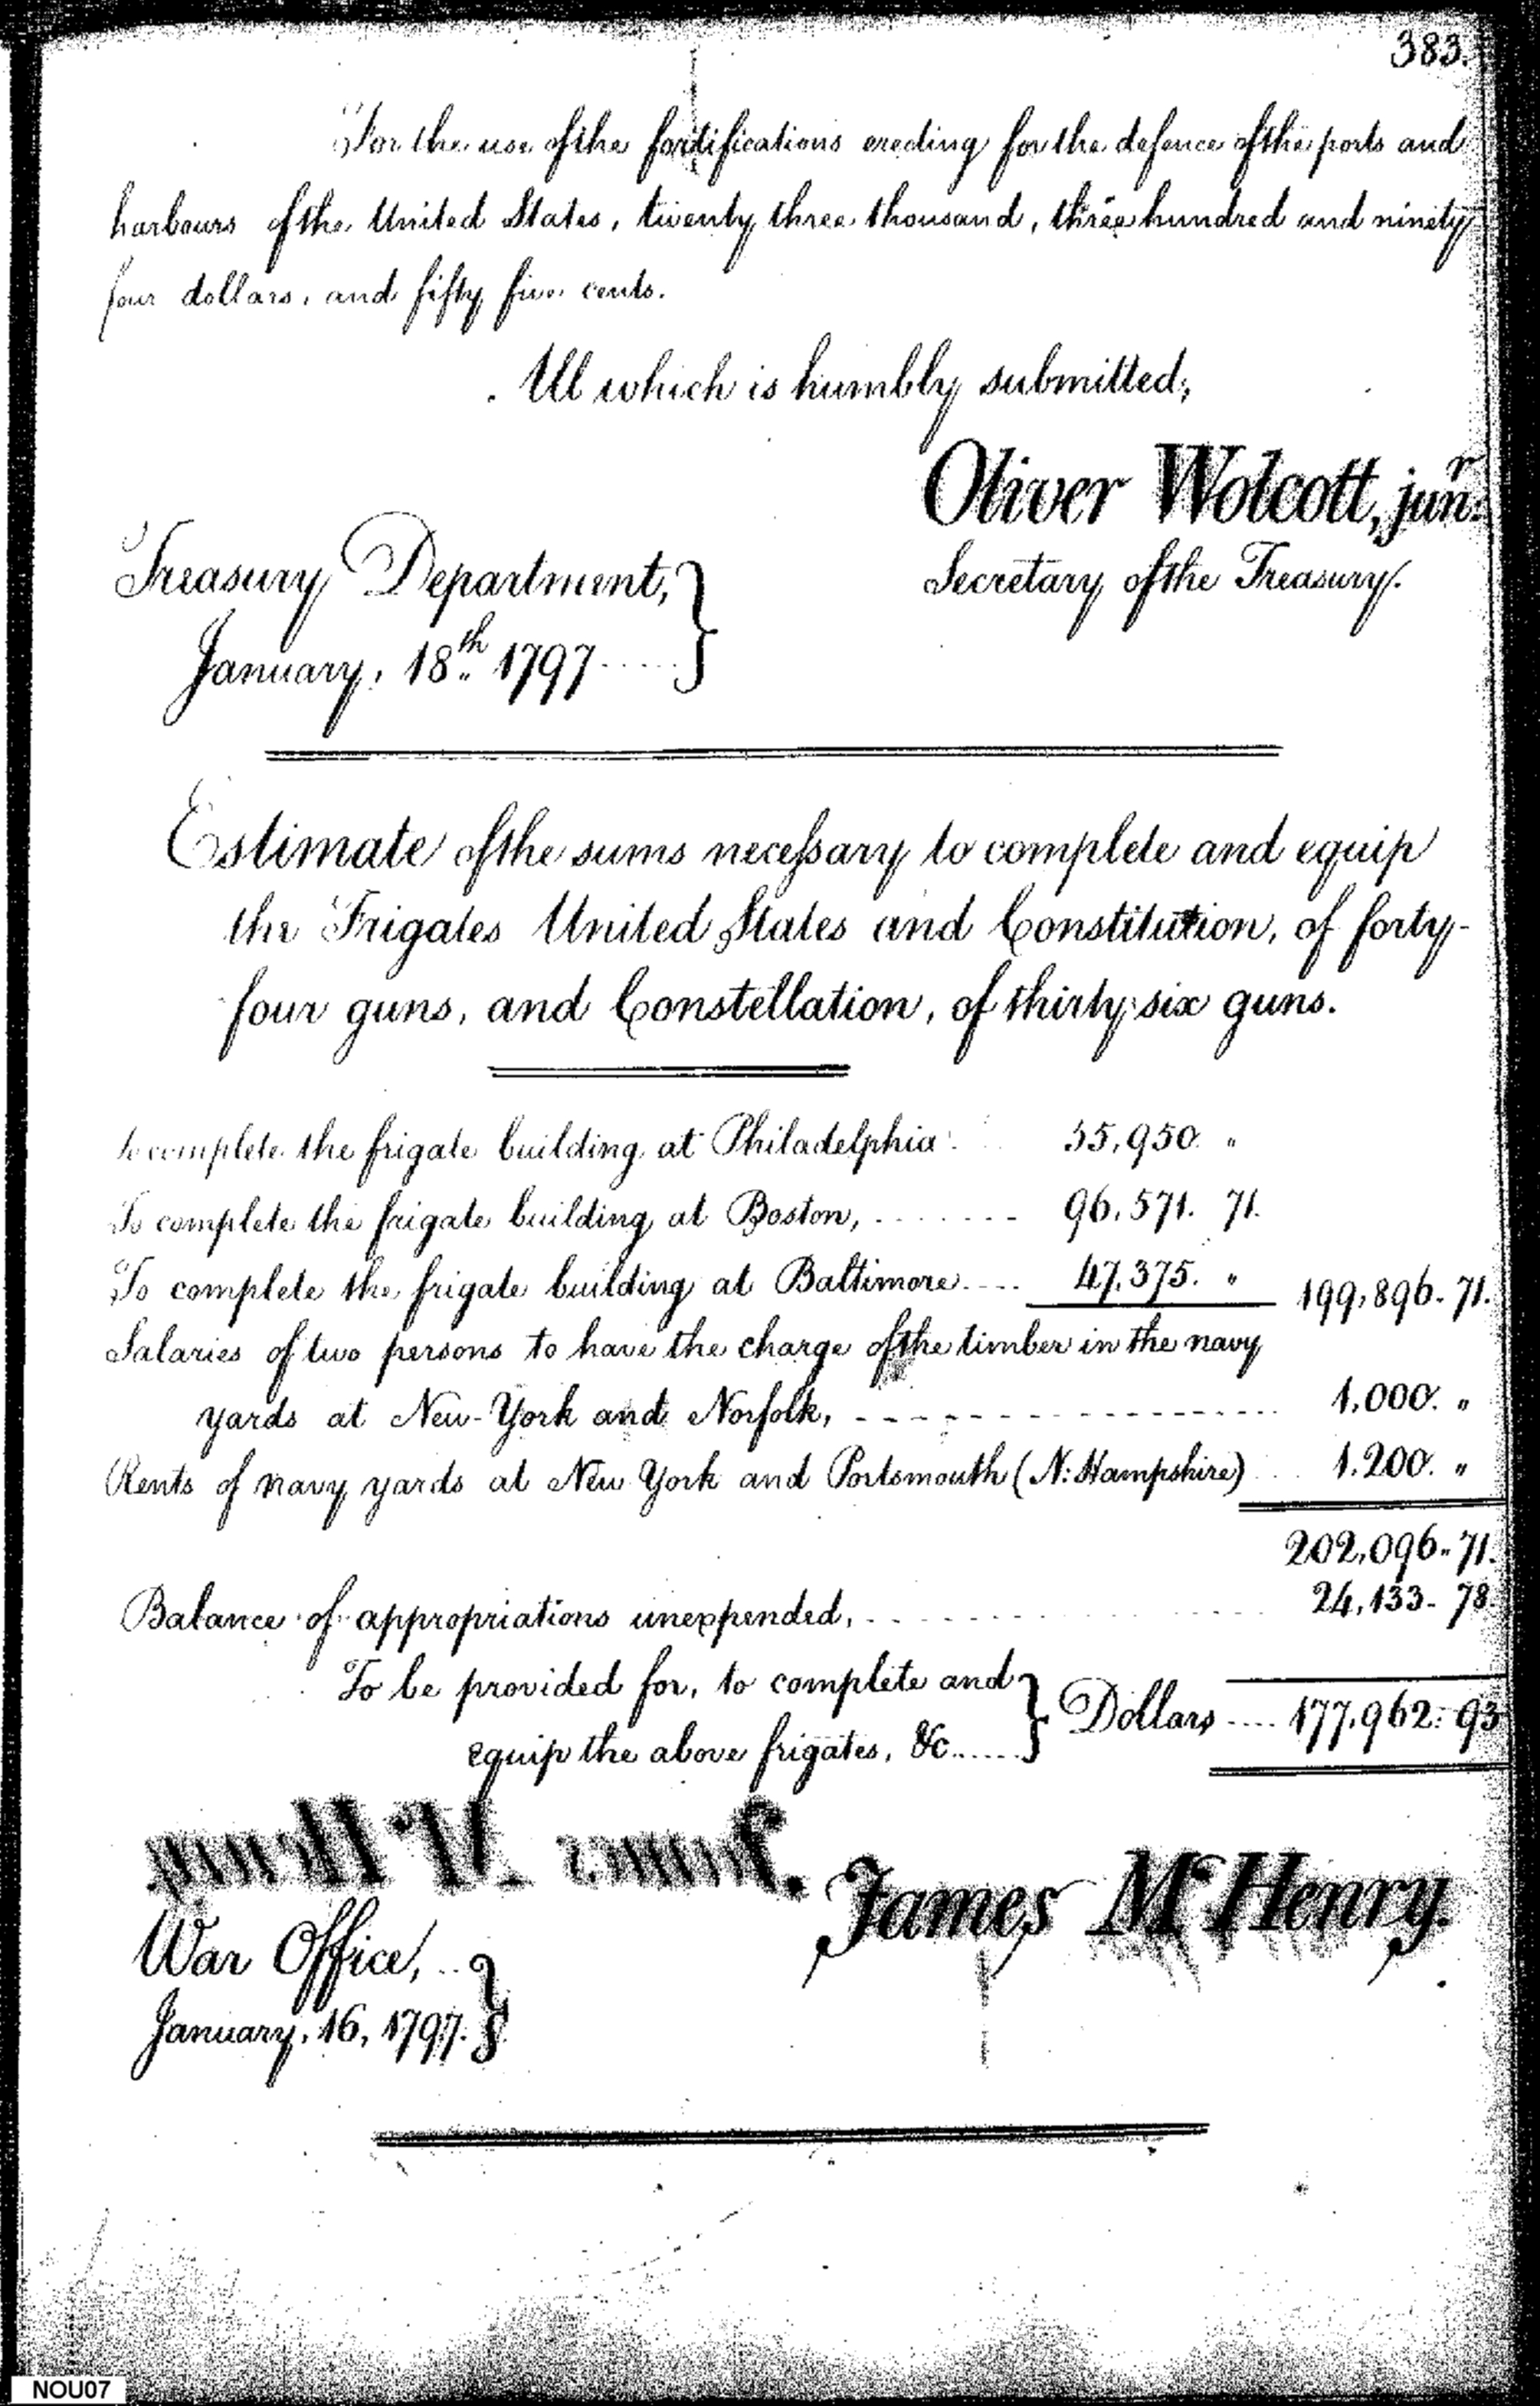 383.
For the use of the fortifications erecting for the defence of the ports and
harbours of the United States, twenty three thousand, three hundred and ninety
four dollars, and fifty five cents.
All which is humbly submitted;
Oliver Wolcott, junr.
Secretary of the Treasury.
Treasury Department,
January, 18th 1797
Estimate of the sums necessary to complete and equip
the Frigates United States and Constitution, of forty-
four guns, and Constellation, of thirty six guns.
To complete the frigate building at Philadelphia 55,950. "
To complete the frigate building at Boston, 96,571. 71.
To complete the frigate building at Baltimore 47,375. " 199,896. 71.
Salaries of two persons to have the charge of the timber in the navy
yards at New-York and Norfolk, 1,000. "
Rents of navy yards at New York and Portsmouth (N: Hampshire) 1.200. "
202,096. 71.
Balance of appropriations unexpended, 24,133. 78.
To be provided for, to complete and
equip the above frigates, &c. } Dollars 177,962. 93
James McHenry.
War Office,
January, 16, 1797.
NOU07